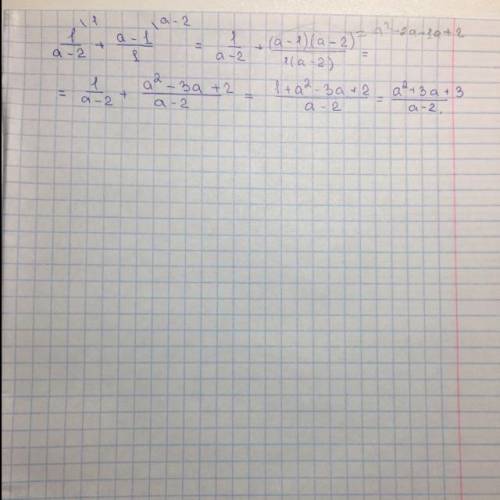 1/(a-2) \1 + (a-1)/1 \a-2 = 1/(a-2) + (a-1)(a-2)/1(a-2) = = a²-2a-1a+2
= 1/(a-2) + (a²-3a+2)/(a-2) = (1+a²-3a+2)/(a-2) = (a²+3a+3)/(a-2).